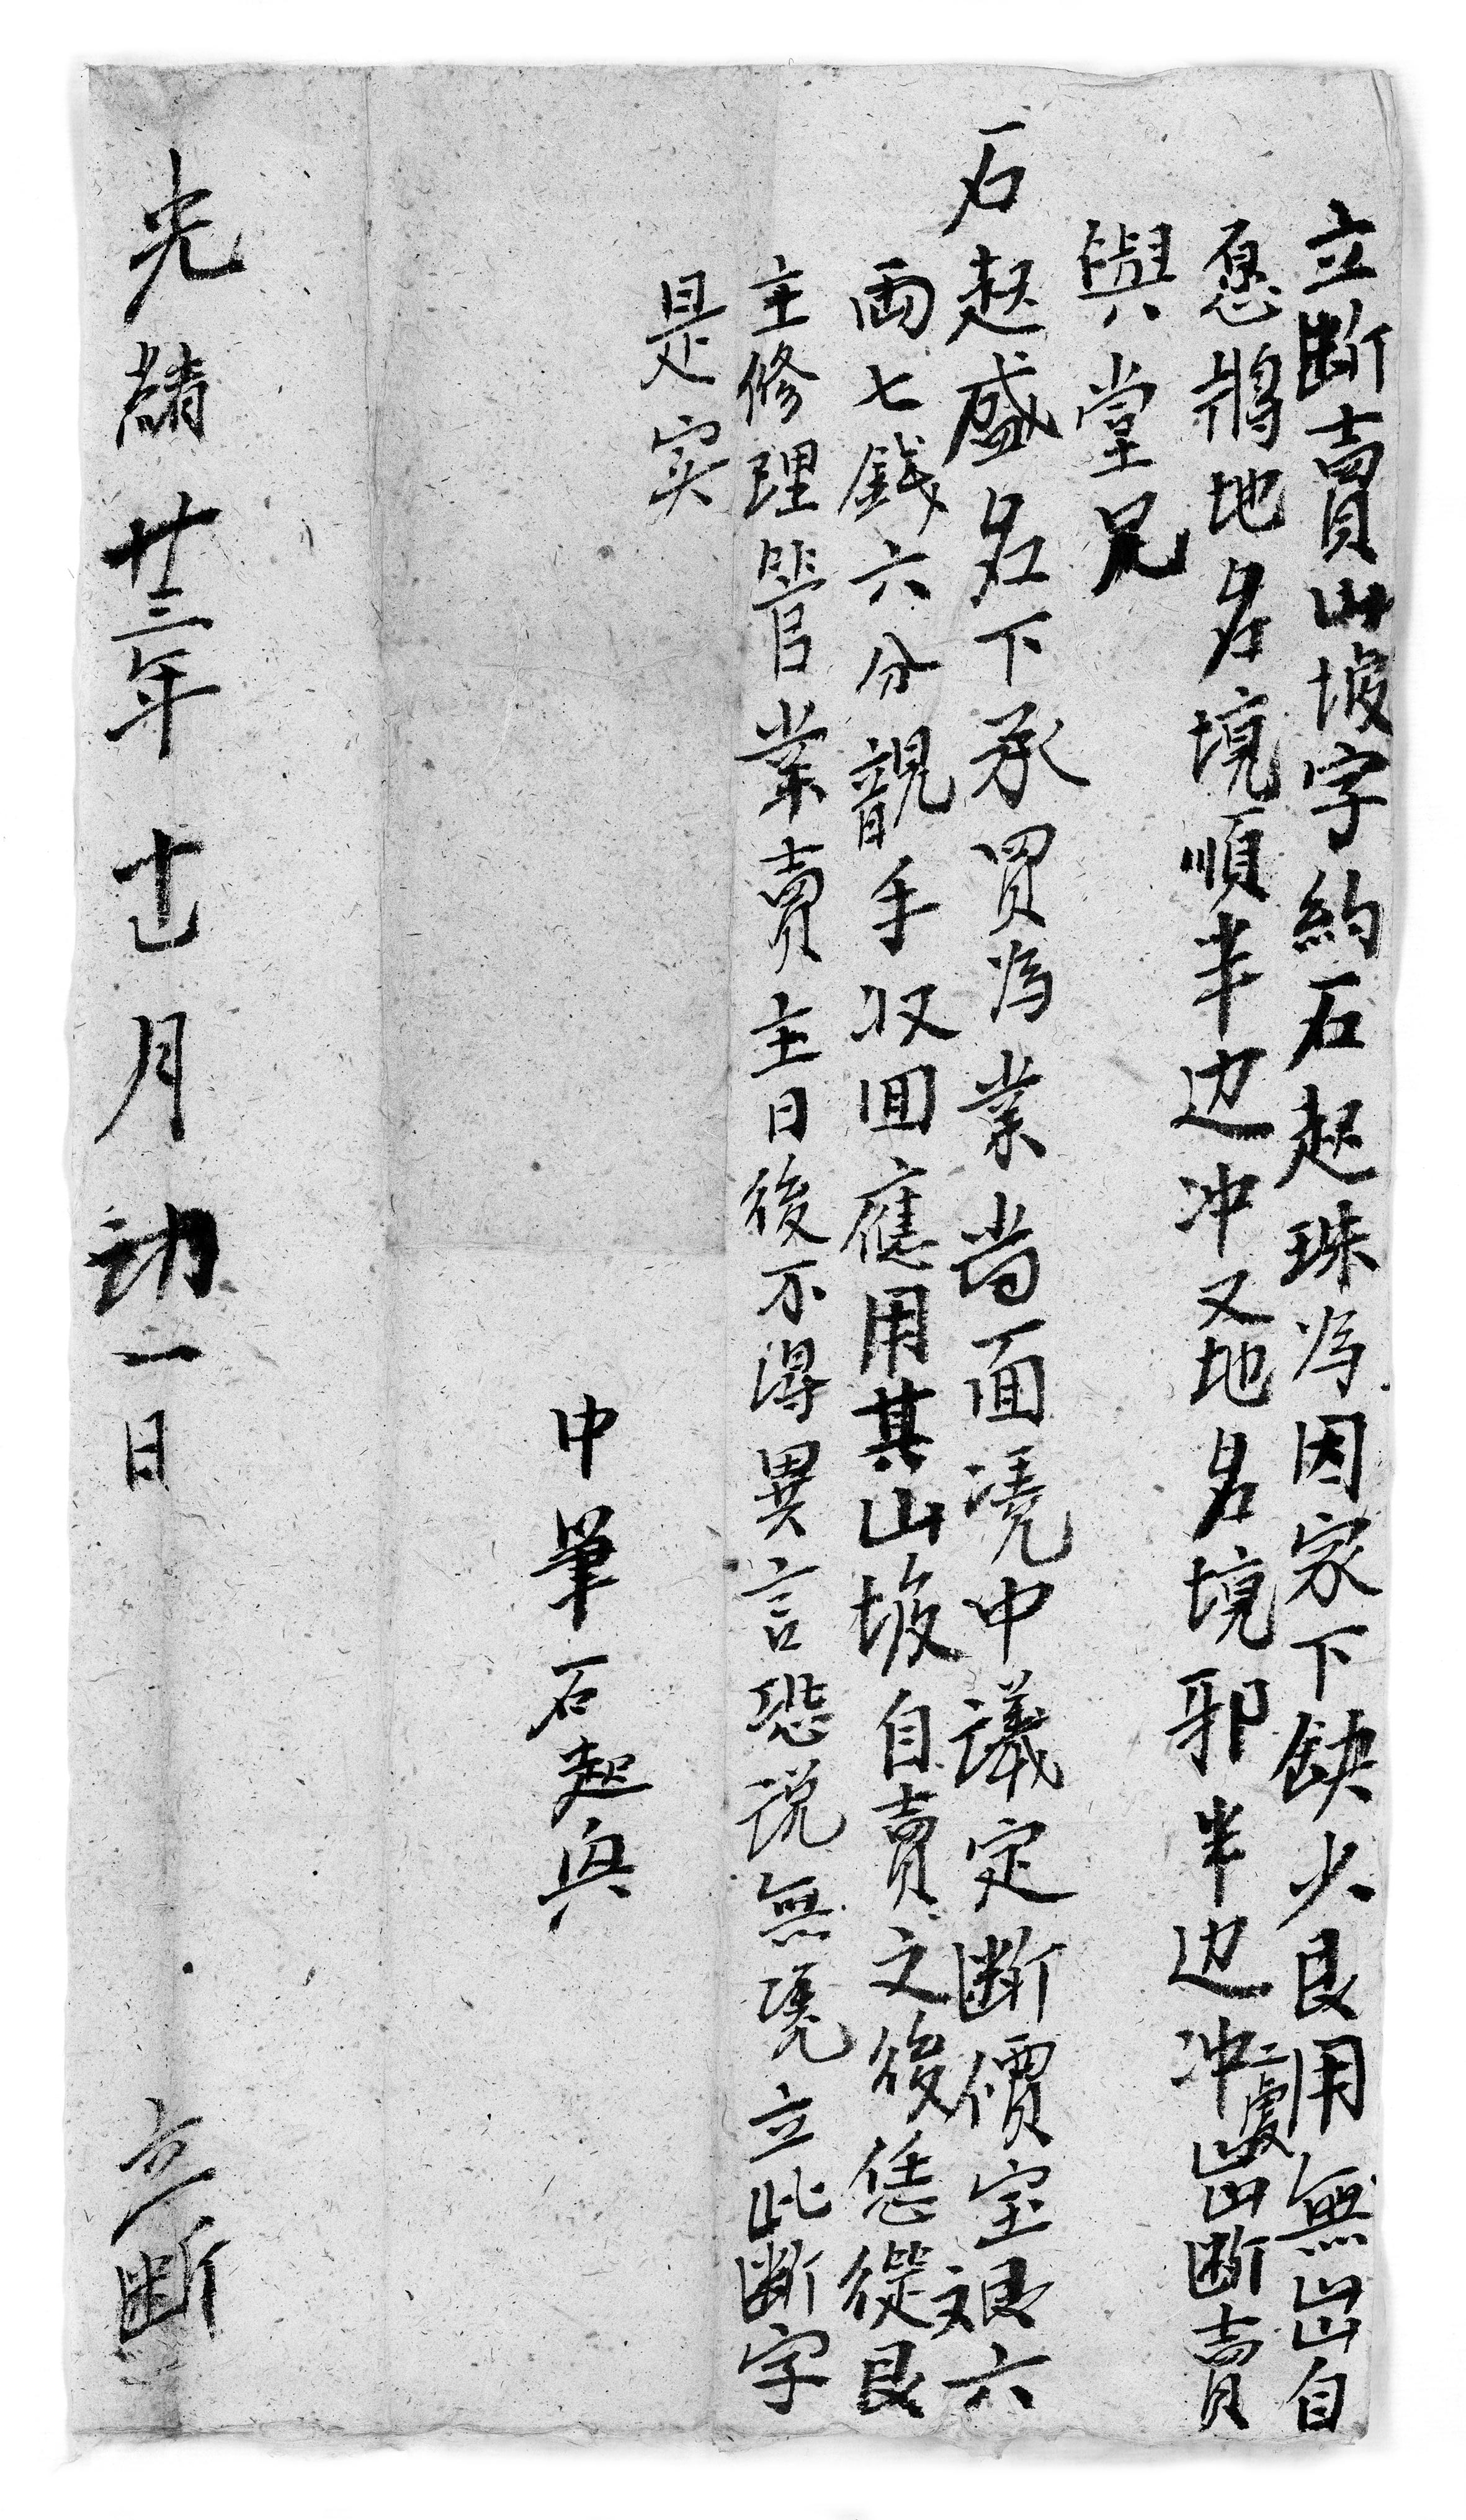 立断賣山坡字約石起珠為因家下缺少艮用無出自
愿將地名境順半边冲又地名境那半边冲二處出断賣
與堂兄
石起盛名下承買為業當面凴中議定断價宝銀六
両七錢六分親手収囬應用其山坡自賣之後恁從艮
主修理管業賣主日後不得異言恐説無凴立此断字
是实
中筆石起興
光緒廿三年十一月初一日 立断